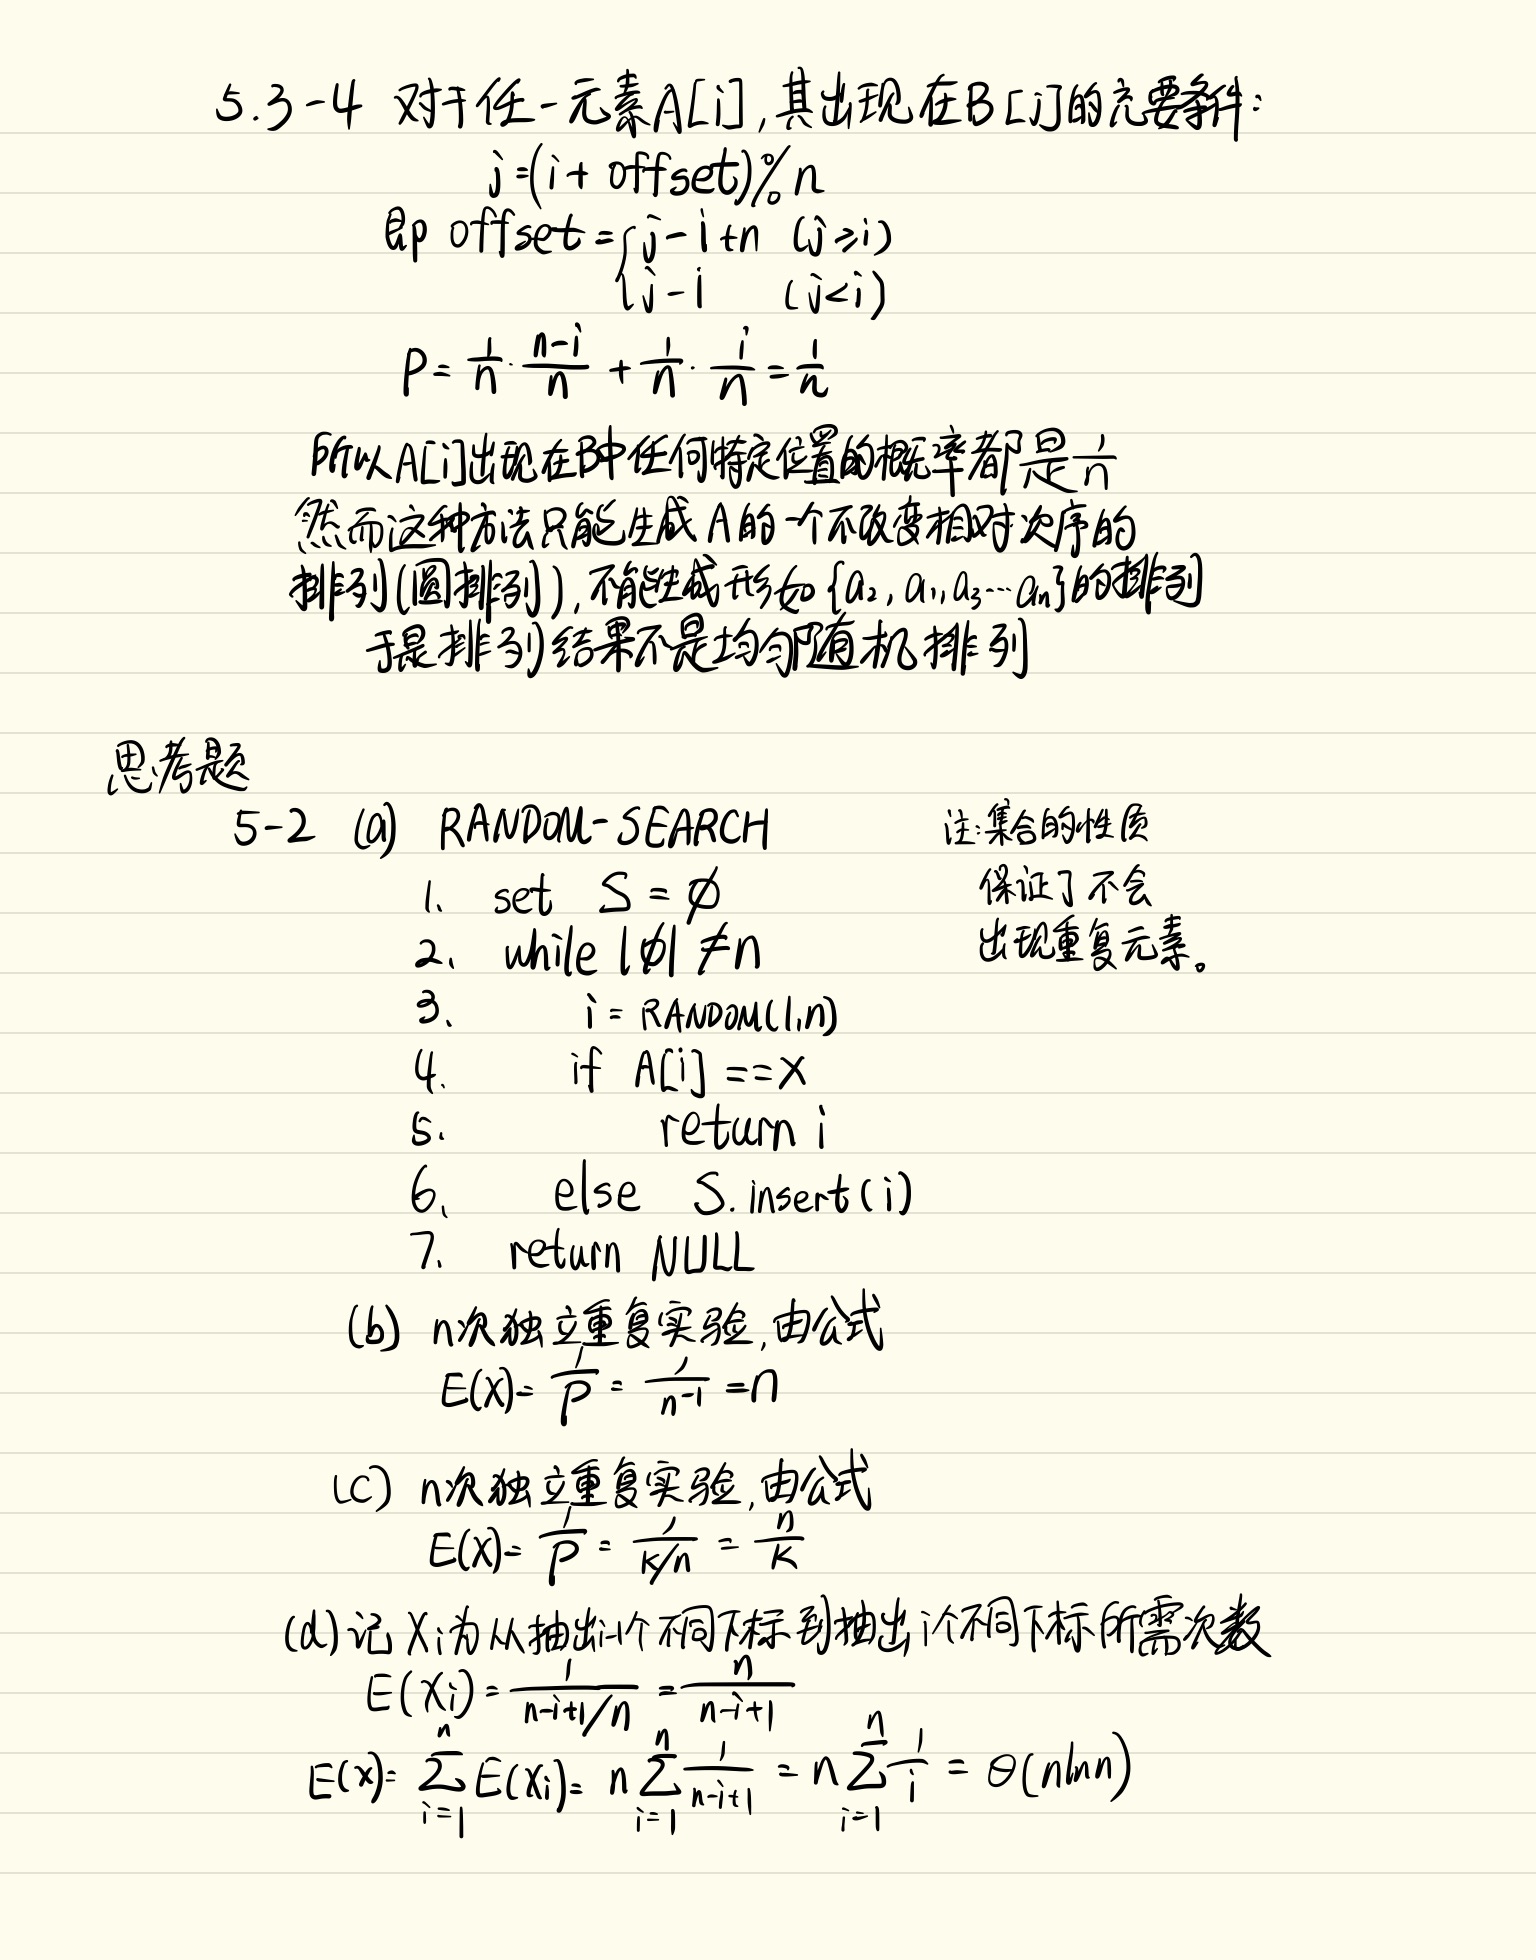 5.3-4 对于任一元素A[i],其出现在B[j]的充要条件:
j=(i+offset)%n
即 offset={j-i+n (j≥i)
j-i (j<i)
P= 1/n · n-i/n + 1/n · i/n = 1/n
所以A[i]出现在B中任何特定位置的概率都是1/n
然而这种方法只能生成A的一个不改变相对次序的
排列(圆排列),不能生成形如{a₂, a₁, a₃…aₙ}的排列
于是排列结果不是均匀随机排列
思考题
5-2 (a) RANDOM-SEARCH
注:集合的性质
保证了不会
出现重复元素。
1. set S = ∅
2. while |∅| ≠ n
3. i = RANDOM(1,n)
4. if A[i] == x
5. return i
6. else S.insert(i)
7. return NULL
(b) n次独立重复实验,由公式
E(X)= 1/P = 1/n⁻¹ = n
(c) n次独立重复实验,由公式
E(X)= 1/P = 1/(k/n) = n/k
(d) 记Xi为从抽出i-1个不同下标到抽出i个不同下标所需次数
E(Xi) = 1/(n-i+1/n) = n/(n-i+1)
E(x)= ∑ᵢ₌₁ⁿ E(Xi)= n∑ᵢ₌₁ⁿ 1/(n-i+1) = n∑ᵢ₌₁ⁿ 1/i = Θ(nlnn)